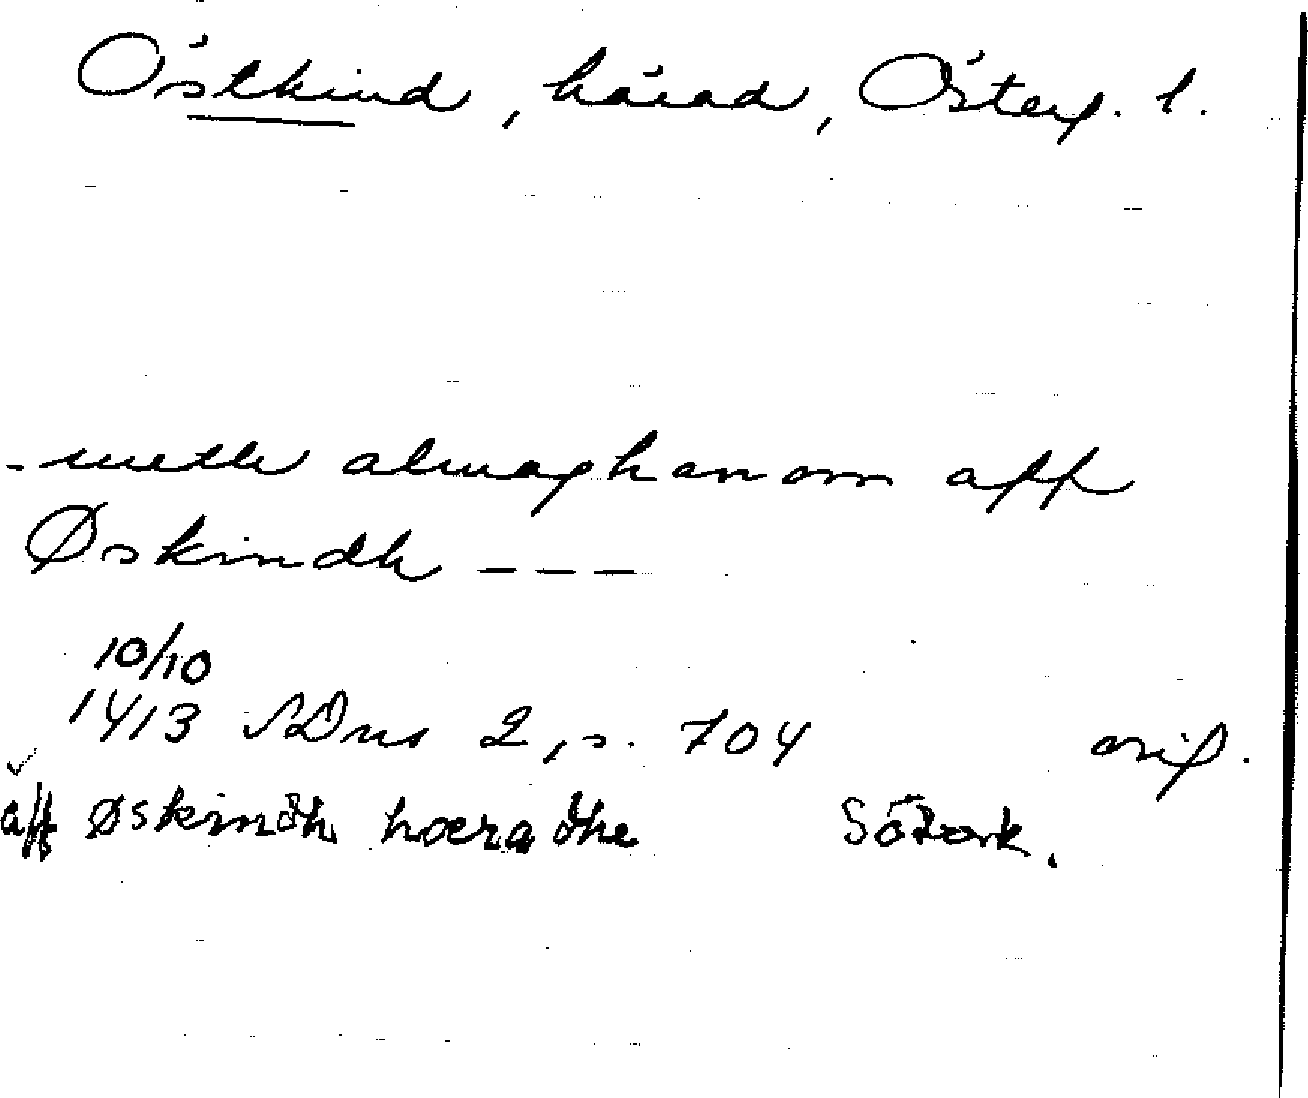 Östkind, härad, Österg. l.
- meth almoghanom aff
Øskindh ---
10/10
1413 SDns 2, s. 704 orig.
aff Øskindh hæradhe